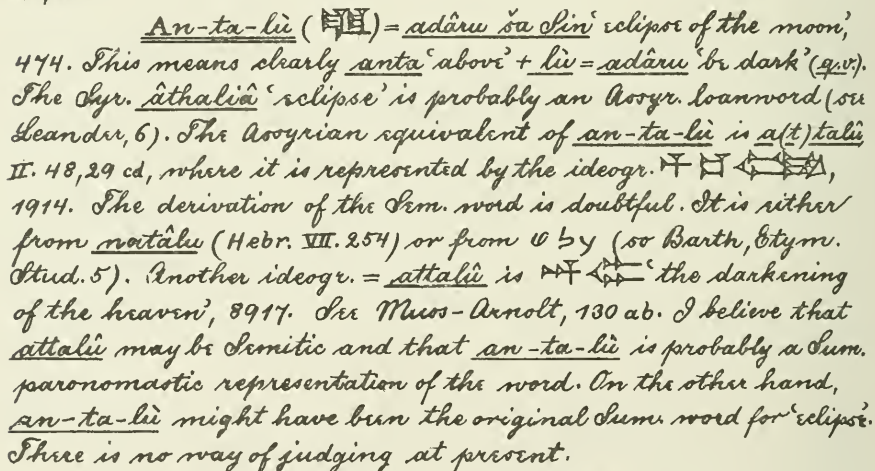 An-ta-lù () = adâru ša Sin 'eclipse of the moon',
474. This means clearly anta 'above' + lù = adâru 'be dark' (q.v.).
The Syr. âthaliâ 'eclipse' is probably an Assyr. loanword (see
Leander, 6). The Assyrian equivalent of an-ta-lù is a(t)talû,
II. 48,29 cd, where it is represented by the ideogr.
1914. The derivation of the Sem. word is doubtful. It is either
from natâlu (Hebr. VII. 254) or from (so Barth, Etym.
Stud. 5). Another ideogr. = attalû is 'the darkening
of the heaven', 8917. See Muss-Arnolt, 130 ab. I believe that
attalû may be Semitic and that an-ta-lù is probably a Sum.
paronomastic representation of the word. On the other hand,
an-ta-lù might have been the original Sum. word for 'eclipse'.
There is no way of judging at present.